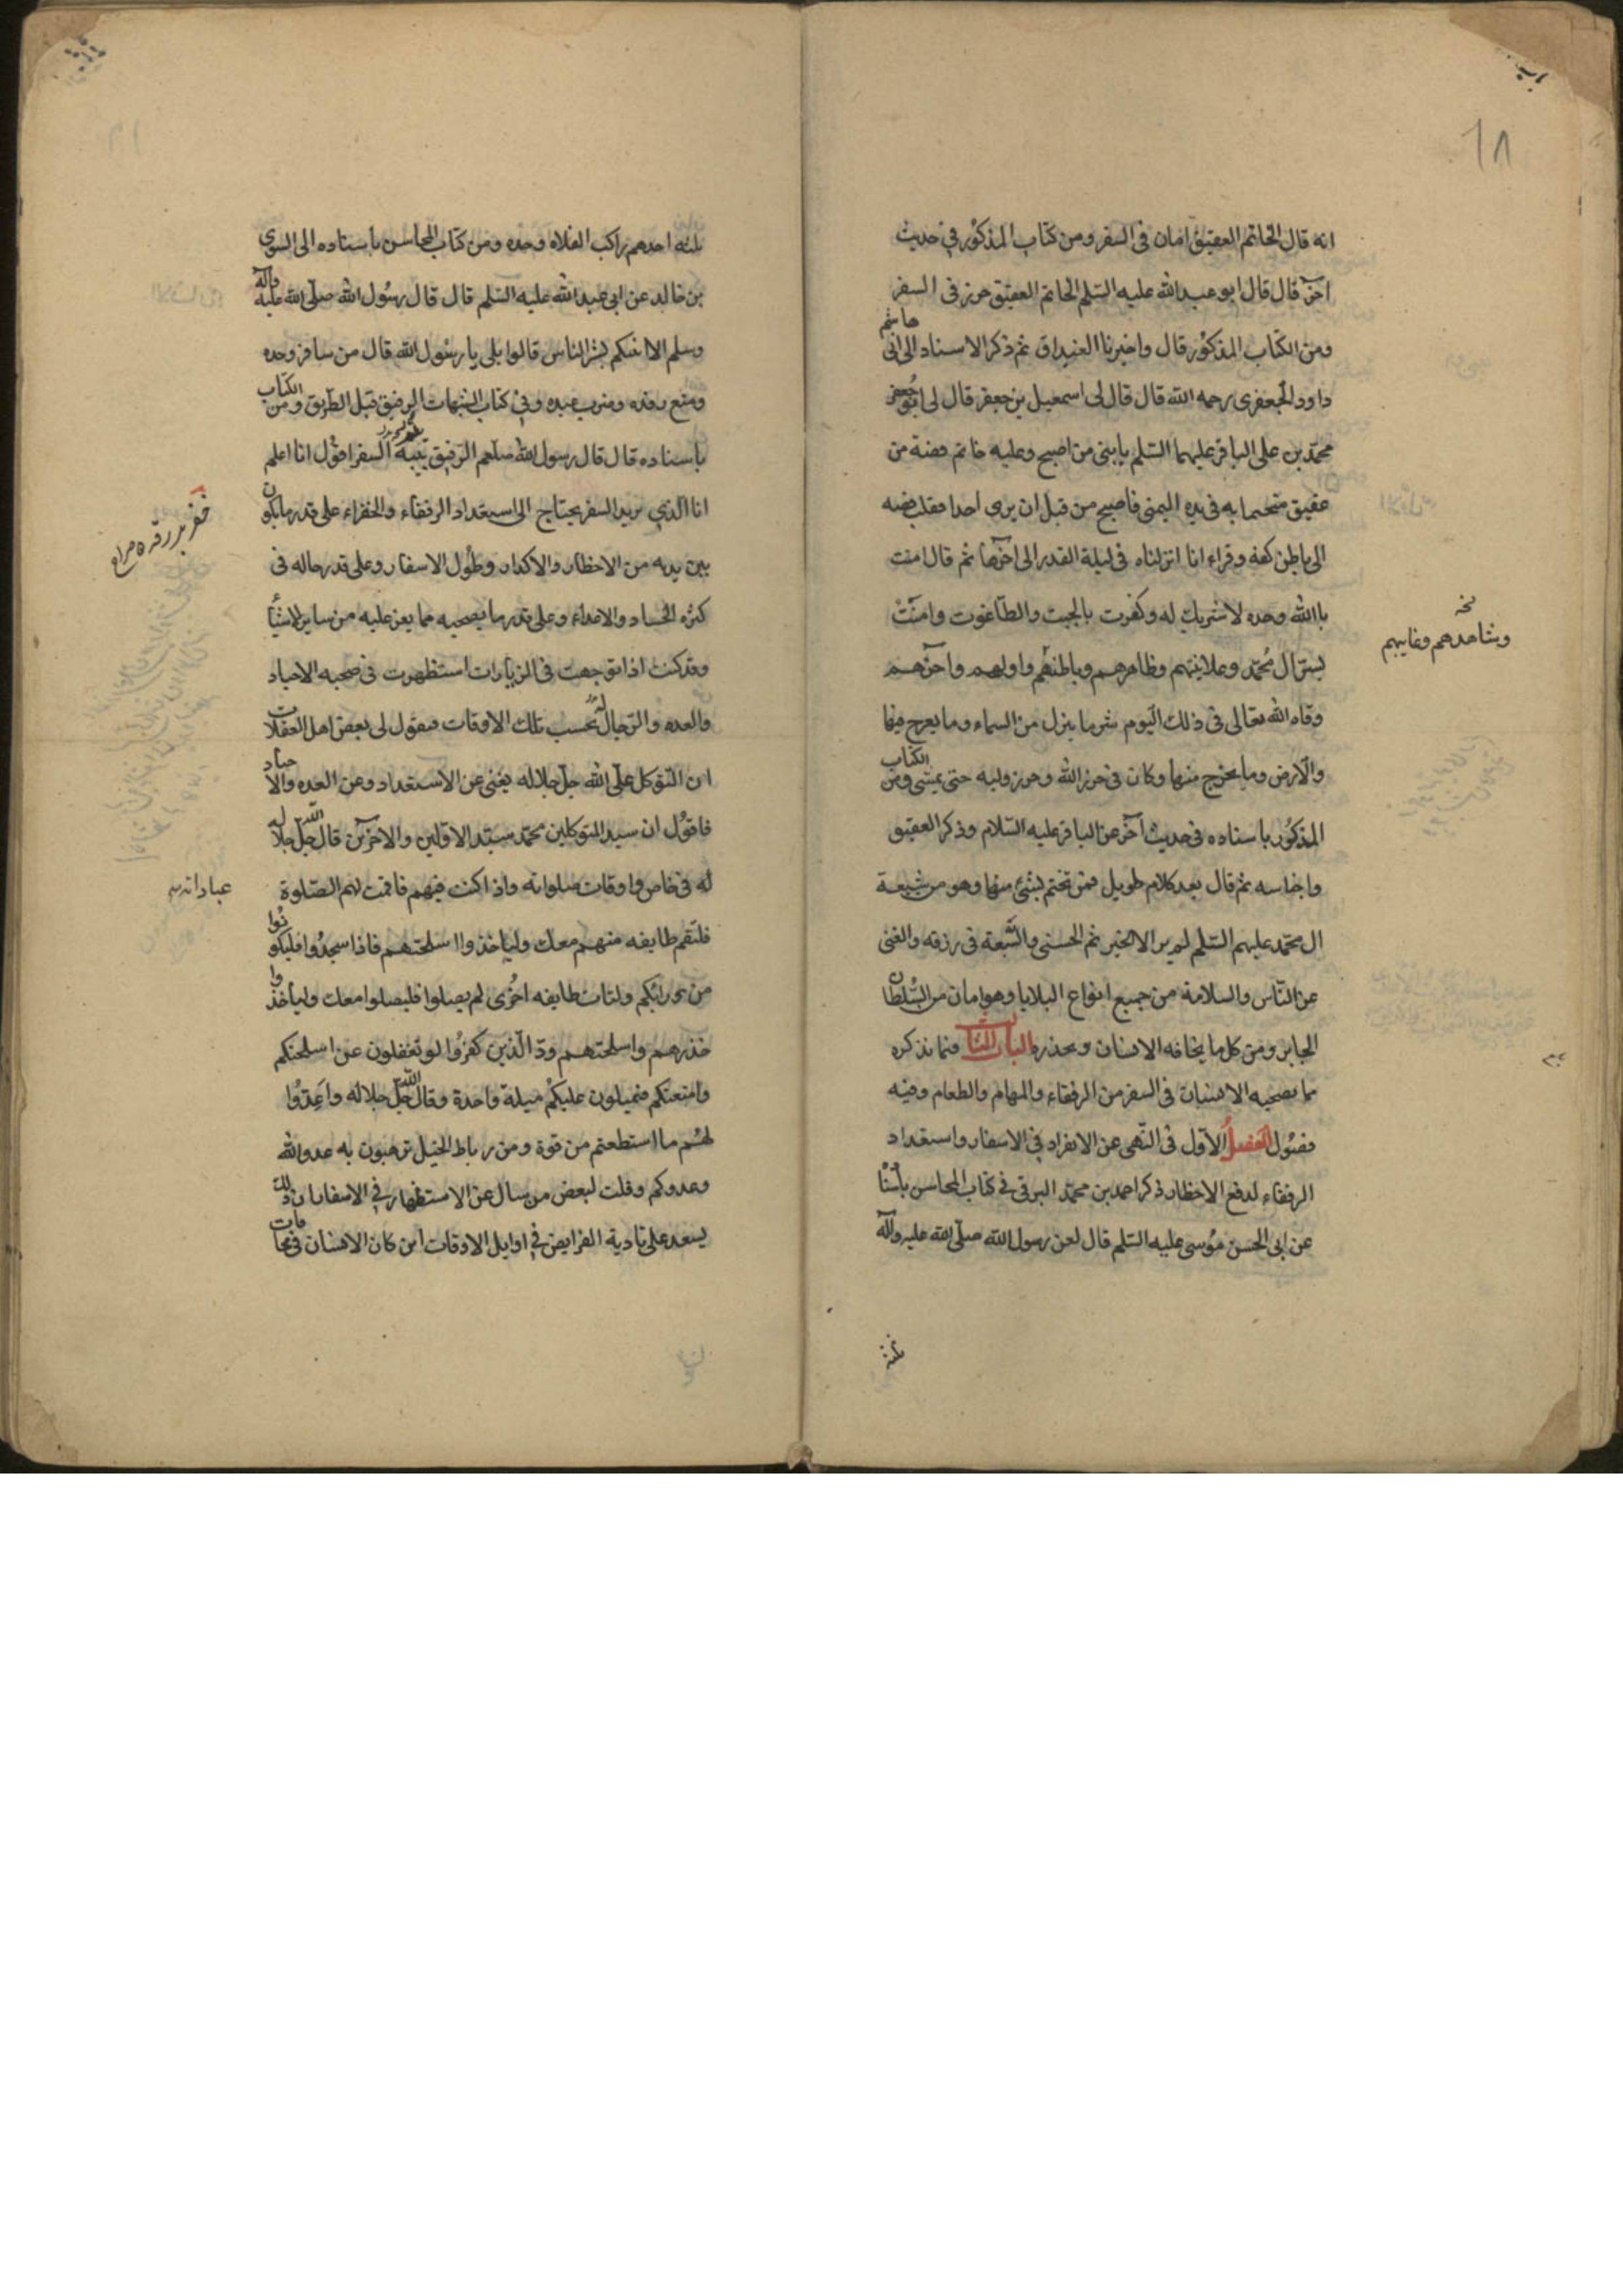 ١٨
انه قال الخاتم العقيق امان فى السفر ومن كتاب المذكور في حديث
آخر قال قال ابو عبد الله عليه السّلم الخاتم العقيق حرز فى السفر
ومن الكتاب المذكور قال واخبرنا الغيداق ثم ذكر الاسناد الى ابى هاشم
داود الجعفرى رحمه الله قال قال لى اسمعيل بن جعفر قال لى ابو جعفر
محمّد بن على الباقر عليهما السّلم يا بنى من اصبح وعليه خاتم فضة من
عقيق متختما به فى يده اليمنى فاصبح من قبل ان يرى احدا فقلب فصه
الى باطن كفه وقراء انا انزلناه فى ليلة القدر الى اخرها ثم قال امنت
بالله وحده لا شريك له وكفرت بالجبت والطّاغوت وامنت
بسرّ ال محمّد وعلانيتهم وظاهرهم وباطنهم واولهم واخرهم
نخه
وشاهدهم وغايبهم
وقاه الله تعالى فى ذلك اليوم شر ما ينزل من السماء وما يعرج فيها
والارض وما يخرج منها وكان فى حرز الله وحرز وليه حتى يمسى ومن الكتاب
المذكور باسناده فى حديث آخر عن الباقر عليه السّلام وذكر العقيق
واجناسه ثم قال بعد كلام طويل فمن تختم بشئ منها وهو من شيعة
ال محمّد عليهم السّلم لم ير الا الخير ثم الحسنى والسّعة فى رزقه والغنى
عن النّاس والسلامة من جميع انواع البلايا وهو امان من السّلطان
الجابر ومن كل ما يخافه الانسان ويحذره الباب الثالث فيما نذكره
مما يصحبه الانسان فى السفر من الرفقاء والمهام والطعام وفيه
فصول الفصل الاوّل فى النّهى عن الانفراد في الاسفار واستعداد
الرفقاء لدفع الاخطار ذكر احمد بن محمّد البرقى في كتاب المحاسن باسنا
عن ابى الحسن موسى عليه السّلم قال لعن رسول الله صلّى الله عليه وآله
ثلثه
ثلثه احدهم راكب الفلاه وحده ومن كتاب المحاسن باسناده الى السرى
بن خالد عن ابى عبد الله عليه السّلم قال قال رسول الله صلّى الله عليه وآله
وسلم الا انبئكم بشر الناس قالوا بلى يا رسول الله قال من سافر وحده
ومنع رفده وضرب عبده وفي كتاب الشهاب الرفيق قبل الطريق ومن الكتاب
باسناده قال قال رسول الله صلعم الرّفيق السفر اقول انا اعلم
انا الّذي يريد السفر يحتاج الى استعداد الرفقاء والخفراء على قدر ما يكون
بين يديه من الاخطار والاكدار وطول الاسفار وعلى قدر حاله فى
كثره الحساد والاعداء وعلى قدر ما يصحبه مما يعز عليه من ساير الاشيا
وقد كنت اذا توجهت فى الزيارات استظهرت فى صحبه الاجناد
والعده والرّجال بحسب تلك الاوقات فيقول لى بعض اهل الغفلات
ان التّوكل على الله جلّ جلاله يغنى عن الاستعداد وعن العده والاجناد
فاقول ان سيد المتوكلين محمّد سيّد الاوّلين والاخرين قال الله جلّ جلاله
له فى خاص اوقات صلواته واذا كنت فيهم فاقمت لهم الصّلوة
فلتقم طايفه منهم معك ولياخذوا اسلحتهم فاذا سجدوا فليكونوا
من ورائكم ولتات طايفه اخرى لم يصلوا فليصلوا معك ولياخذوا
حذرهم واسلحتهم ودّ الّذين كفروا لو تغفلون عن اسلحتكم
وامتعتكم فيميلون عليكم ميلة واحدة وقال الله جلّ جلاله واعدّوا
لهم ما استطعتم من قوة ومن رباط الخيل ترهبون به عدو الله
وعدوكم وقلت لبعض من سال عن الاستظهار في الاسفار ان ذلك
يسعد على تادية الفرايض في اوايل الاوقات اين كان الانسان في مخافات